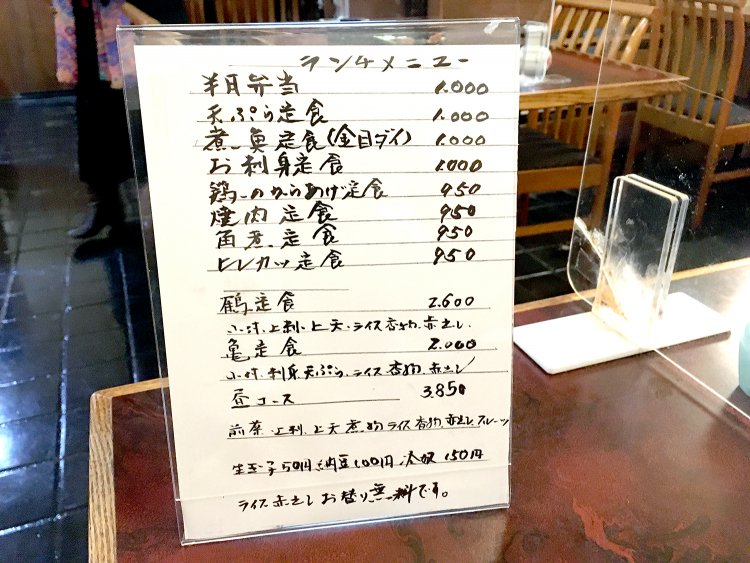 ランチメニュー
半月弁当 1.000
天ぷら定食 1.000
煮魚定食(金目ダイ) 1.000
お刺身定食 1.000
鶏のからあげ定食 950
焼肉定食 950
角煮定食 950
ヒレカツ定食 950
鶴定食 2.600
小付.上刺.上天.ライス 香物.赤だし.
亀定食 2.000
小付.刺身.天ぷら.ライス.香物.赤だし
昼コース 3.850
前菜.上刺.上天.煮物.ライス.香物.赤だし.フルーツ
生玉子50円 納豆100円 冷奴150円
ライス 赤だし お替り無料です。